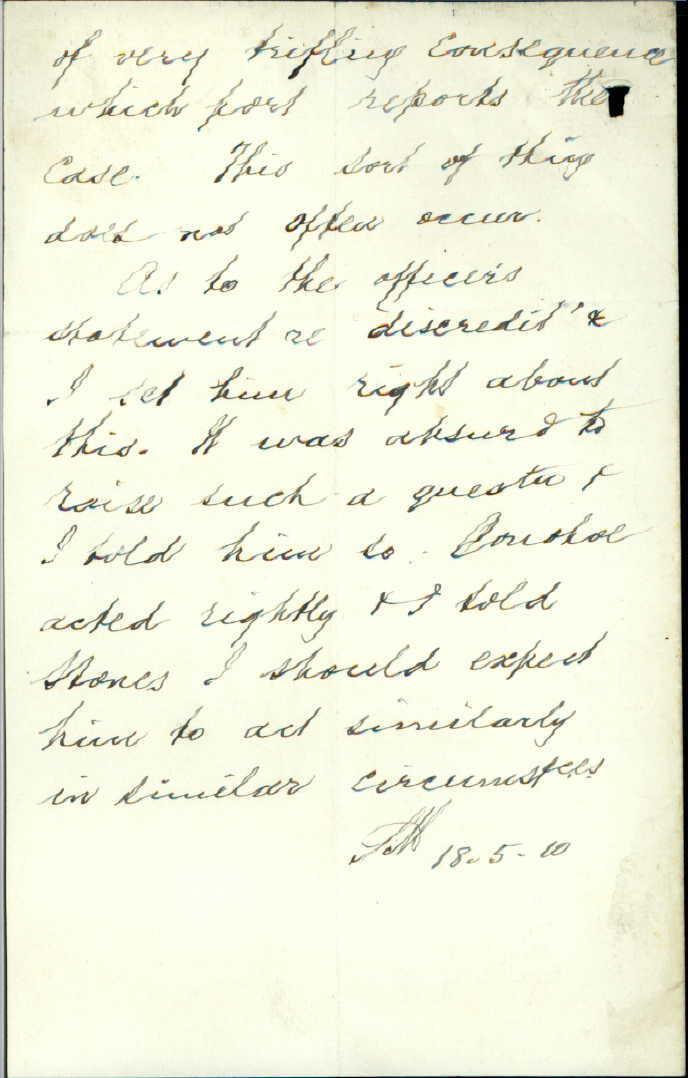 of very trifling consequence
which port reports the
case. This sort of thing
does not often occur.
As to the officer's
statement re "discredit" &
I set him right about
this. It was absurd to
raise such a questn &
I told him so. Donohoe
acted rightly & I told
Stones I should expect
him to act similarly
in similar circumstces
18.5-10